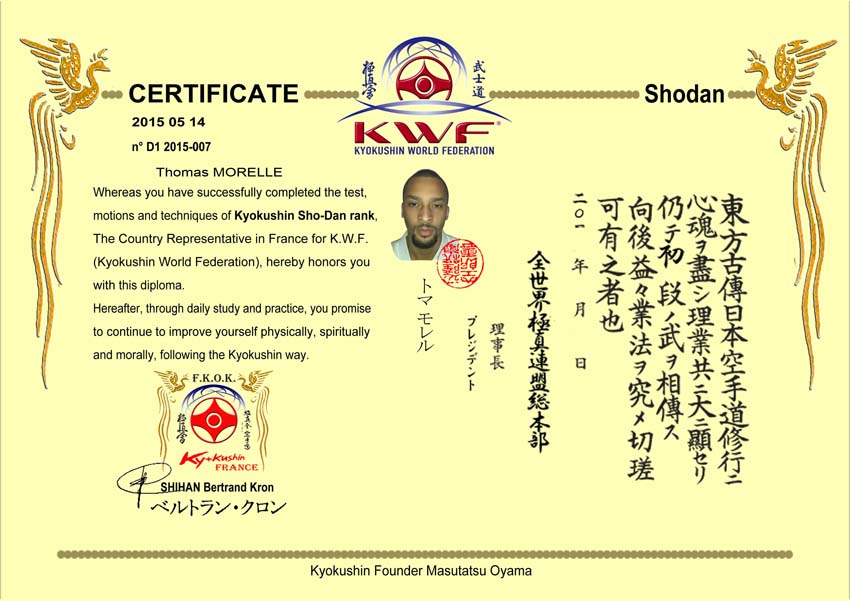 CERTIFICATE
Shodan
2015 05 14
n° D1 2015-007
極真会
武士道
KWF®
KYOKUSHIN WORLD FEDERATION
Thomas MORELLE
Whereas you have successfully completed the test,
motions and techniques of Kyokushin Sho-Dan rank,
The Country Representative in France for K.W.F.
(Kyokushin World Federation), hereby honors you
with this diploma.
Hereafter, through daily study and practice, you promise
to continue to improve yourself physically, spiritually
and morally, following the Kyokushin way.
東方古傳日本空手道修行ニ
心魂ヲ盡シ理業共ニ大ニ顯セリ
仍テ初段ノ武ヲ相傳ス
向後益々業法ヲ究メ切瑳
可有之者也
二〇一 年 月 日
全世界極真連盟総本部
理事長
プレジデント
トマ モレル
F.K.O.K.
極真会
Ky+kushin
FRANCE
SHIHAN Bertrand Kron
ベルトラン・クロン
Kyokushin Founder Masutatsu Oyama